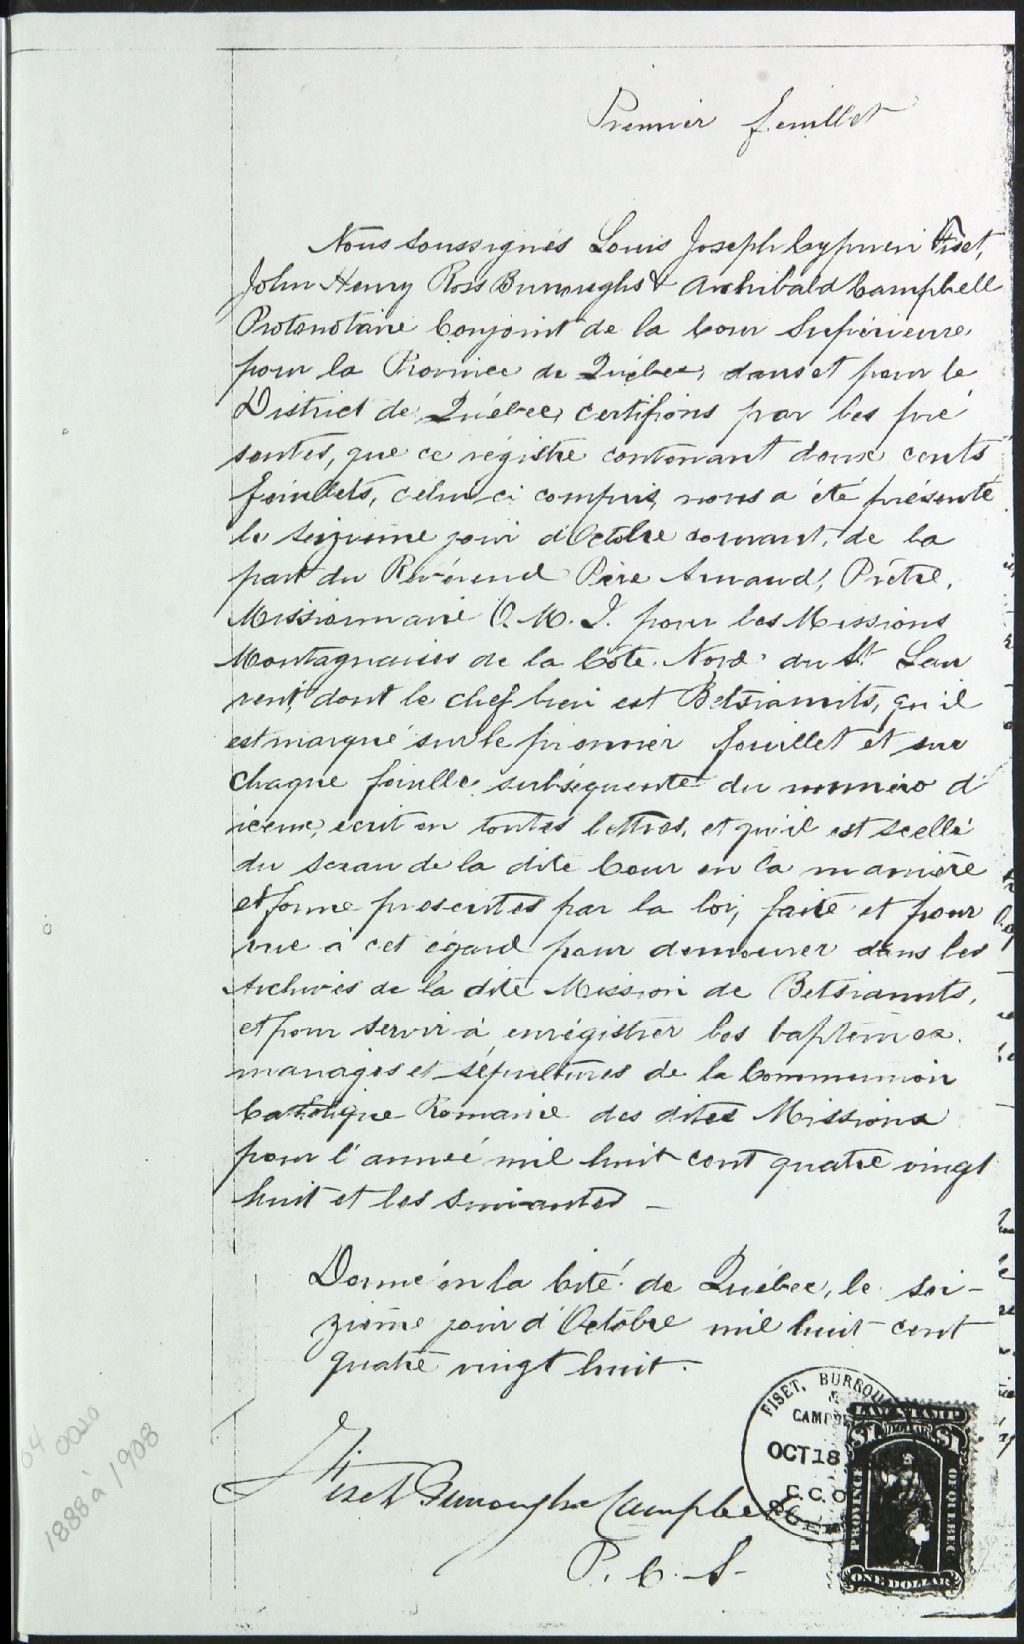 Premier feuillet
Nous soussignés Louis Joseph Cyprien Fiset,
John Henry Ross Burroughs & Archibald Campbell
Protonotaire Conjoint de la Cour Supérieure
pour la Province de Québec, dans et pour le
District de Québec, certifions par les pré
sentes, que ce régistre contenant deux cents
feuillets, celui ci compris, nous a été présenté
le seizième jour d'Octobre courant, de la
part du Révérend Père Arnaud, Prêtre,
Missionnaire O. M. I. pour les Missions
Montagnaises de la Côte Nord du St Lau
rent, dont le chef lieu est Betsiamits, qu'il
est marqué sur le premier feuillet et sur
chaque feuille subséquente du numéro d'
iceux, écrit en toutes lettres, et qu'il est scellé
du sceau de la dite Cour en la manière
et forme prescrites par la loi, faite et pour
vue à cet égard pour demeurer dans les
Archives de la dite Mission de Betsiamits,
et pour servir à enrégistrer les baptêmes
mariages et sépultures de la Communion
Catholique Romaine des dites Missions
pour l'année mil huit cent quatre vingt
huit et les suivantes _
Donné en la Cité de Québec, le sei-
zième jour d'Octobre mil huit cent
quatre vingt huit.
FISET, BURROU
&
CAMPBE
OCT 18
C. C. O
LAW STAMP
$1. DOLLAR $1.
PROVINCE
OF QUEBEC
ONE DOLLAR
Fiset Burroughs Campbell
P. C. S.
64 0020
1888 à 1908